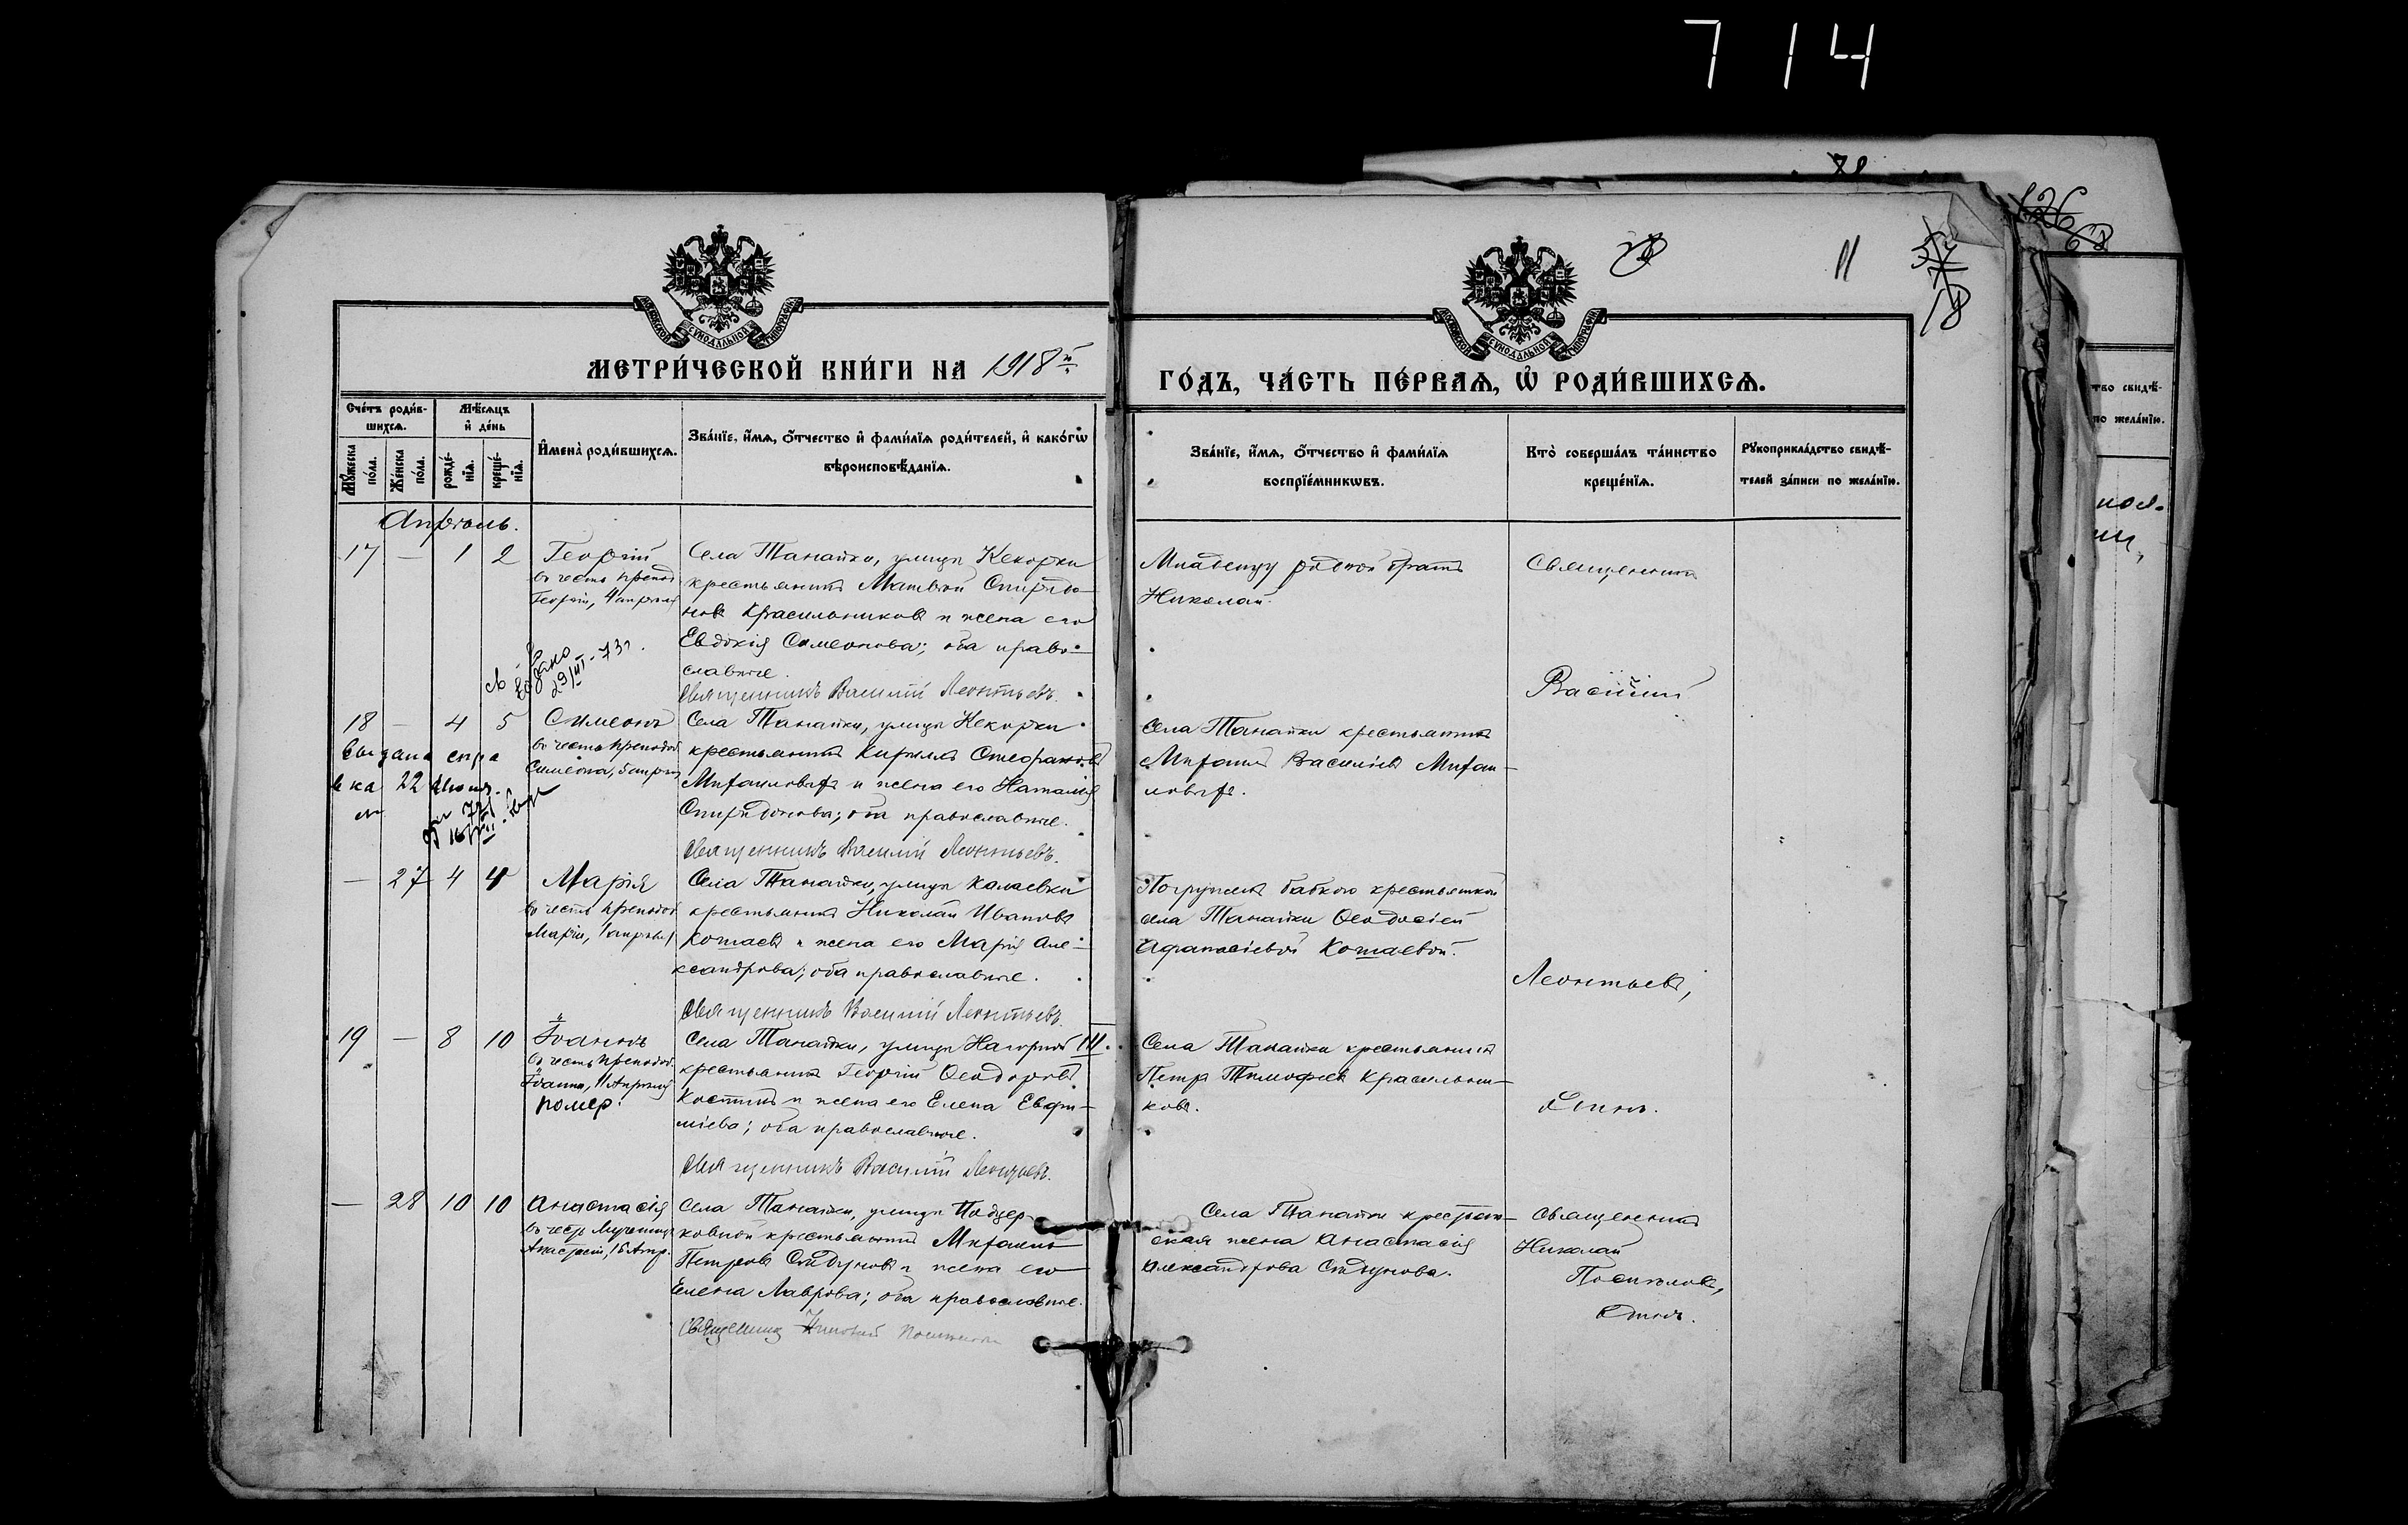 7 14
78
126
68
11
57
18
МЕТРИ́ЧЕСКОЙ КНИ́ГИ НА 1918й
ГО́ДЪ, ЧА́СТЬ ПЕ́РВАѦ, Ѡ҆ РОДИ́ВШИХСѦ.
Сче́тъ роди́в-
шихсѧ.
Мѣ́сѧцъ
и҆ де́нь
Мꙋ́жеска
по́ла.
Же́нска
по́ла.
рожде́-
нїѧ.
креще́-
нїѧ.
И҆мена̀ роди́вшихсѧ.
Зва́нїе, и҆́мѧ, ѻ҆́тчество и҆ фами́лїѧ роди́телей, и҆ како́гѡ
вѣроисповѣ́данїѧ.
Зва́нїе, и҆́мѧ, ѻ҆́тчество и҆ фами́лїѧ
воспрїе́мникѡвъ.
Кто̀ соверша́лъ та́инство
креще́нїѧ.
Рꙋкоприкла́дство свидѣ́-
телей за́писи по жела́нїю.
Апрѣль.
17 — 1 2
Георгій
въ честь препод
Георгія, 4 апрѣля
Села Танайки, улицы Кекорки
крестьянинъ Матвѣй Спиридо-
новъ Красильниковъ и жена его
Евдокія Симеонова; оба право-
славные.
Священникъ Василій Леонтьевъ.
Младенцу родной братъ
Николай.
Священникъ
Василій
29/III-73г.
18 — 4 5
Симеонъ
въ честь преподоб
Симеона, 5 апрѣл
выдана спра
вка 22 Июня.
Села Танайки, улицы Кекорки
крестьянинъ Кириллъ Стефановъ
Михаиловыхъ и жена его Наталія
Спиридонова; оба православные.
Священникъ Василій Леонтьевъ.
Села Танайки крестьянинъ
Михаилъ Василіевъ Михаи-
ловыхъ.
— 27 4 4
Марія
въ честь преподоб
Маріи, 1 апрѣля
Села Танайки, улицы Калаевки
крестьянинъ Николай Ивановъ
Кошаевъ и жена его Марія Але-
ксандрова; оба православные.
Священникъ Василій Леонтьевъ.
Погружена бабкою крестьянкой
села Танайки Ѳеодосіей
Афанасіевой Кошаевой.
Леонтьевъ,
19 — 8 10
Іоаннъ
въ честь преподоб.
Іоанна, 11 Апрѣля
помер.
Села Танайки, улицы Нагорной III.
крестьянинъ Георгій Ѳеодоровъ
Костинъ и жена его Елена Евфи-
міева; оба православные.
Священникъ Василій Леонтьевъ.
Села Танайки крестьянинъ
Петръ Тимофеевъ Красильни-
ковъ.
— 28 10 10
Анастасія
въ честь Мученицы
Анастасіи, 15 Апр.
Села Танайки, улицы Подцер-
ковной крестьянинъ Михаилъ
Петровъ Сѣдуновъ и жена его
Елена Лаврова; оба православные.
Священникъ Николай
Села Танайки крестьян-
ская жена Анастасія
Александрова Сѣдунова.
Священникъ
Николай
тво свидѣ́-
по жела́нїю.